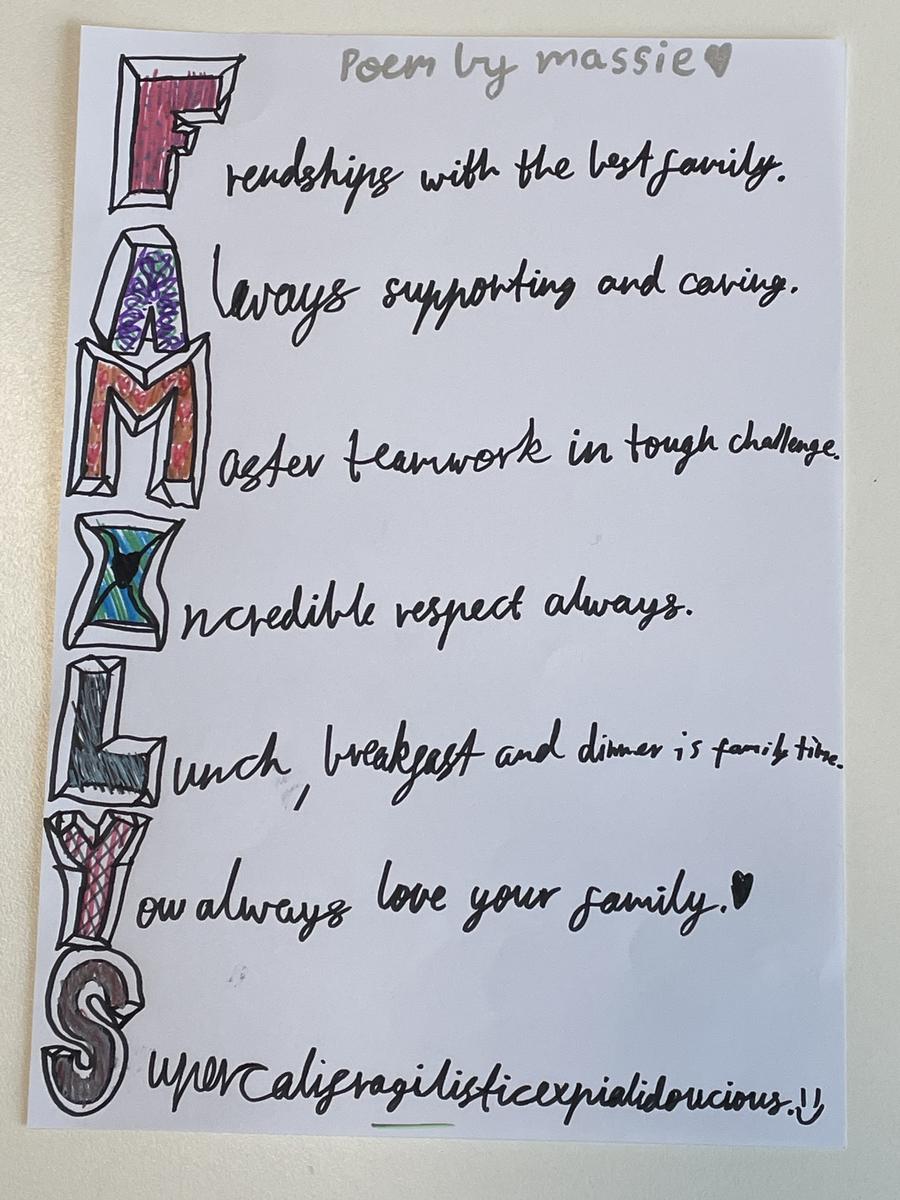 Poem by massie♥
Frendships with the best family.
Always supporting and caring.
Master teamwork in tough challenge.
Incredible respect always.
Lunch, breakfast and dinner is family time.
You always love your family.♥
Supercalifragilisticexpialidoucious.